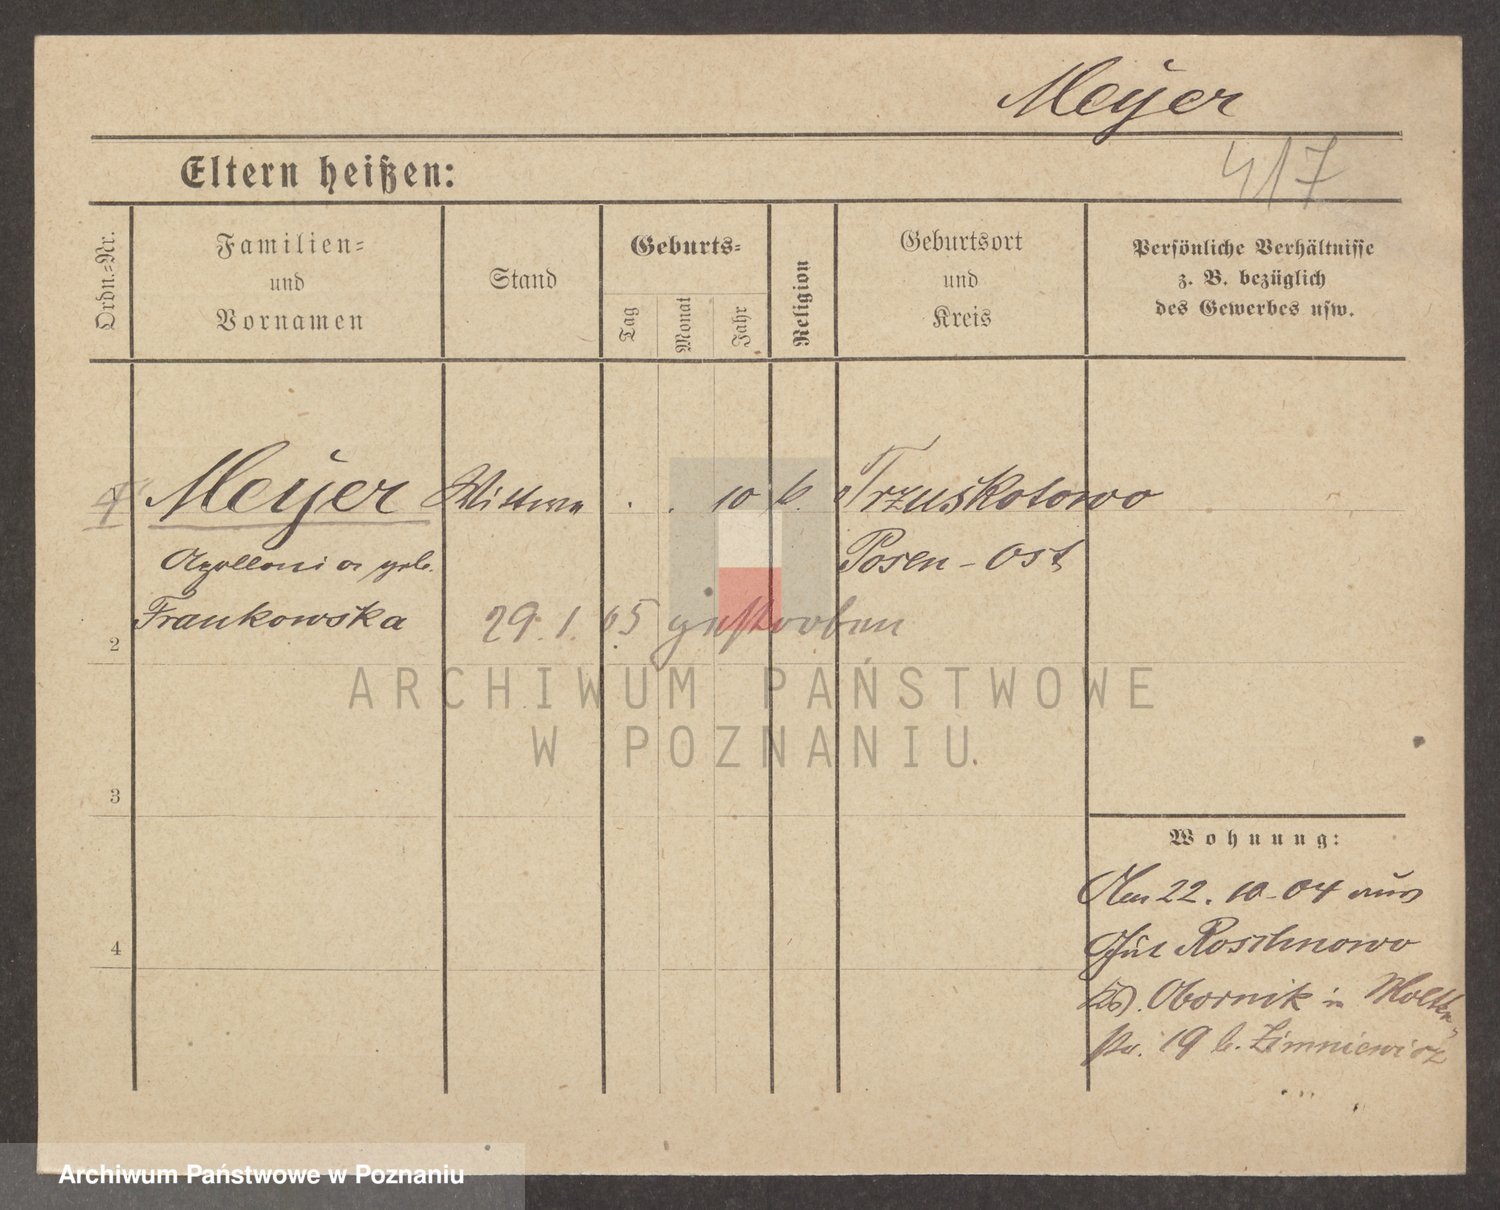 Meyer
417
Eltern heißen:
Ordn.=Nr.
Familien=
und
Vornamen
Stand
Geburts=
Tag
Monat
Jahr
Religion
Geburtsort
und
Kreis
Persönliche Verhältnisse
z. B. bezüglich
des Gewerbes usw.
Meyer Wittwe . . 10 k. Trzuskotowo
Apollonia geb. Posen-Ost
Frankowska
29.1.05 gestorben
2
ARCHIWUM PAŃSTWOWE
W POZNANIU
3
Wohnung:
Am 22.10.04 aus
Gut Roschnowo
4
Obornik in Moltke
str. 19 b. Zimniewicz
Archiwum Państwowe w Poznaniu